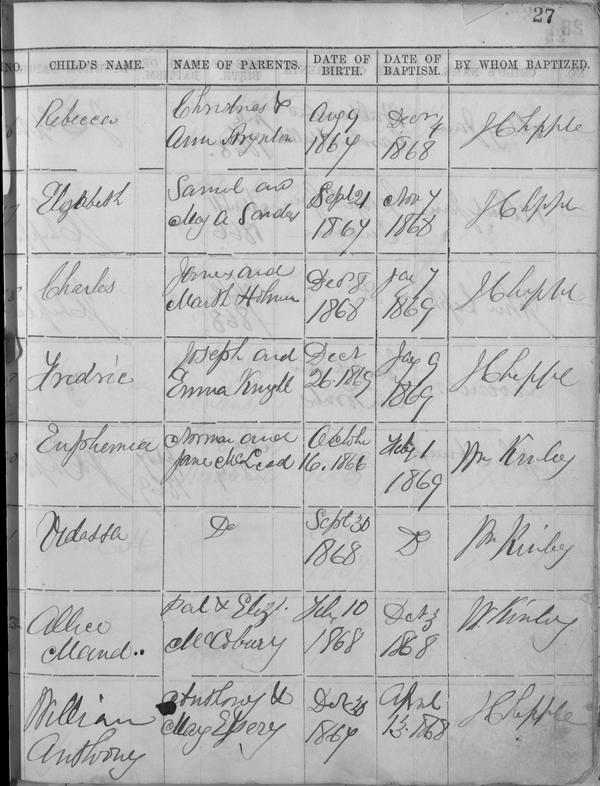 27
NO. CHILD'S NAME. NAME OF PARENTS. DATE OF BIRTH. DATE OF BAPTISM. BY WHOM BAPTIZED.
Rebecca
Christmas &
Ann
Aug 9
1867
Decr 4
1868
J Chipple
Elizabeth
Samel and
May A Sanders
Sept 21
1867
Nov 7
1868
J Chipple
Charles
James and
Marth Holmes
Decr 8
1868
Jay 7
1869
J Chipple
Fredric
Joseph and
Emma Knight
Decr
26. 1869
Jay 9
1869
J Chipple
Euphemia
Norman and
Jane McLeod
Octobr
16. 1866
Feby 1
1869
Wm Kinley
Vidassa
Do
Sept 30
1868
Do
Wm Kinley
Allice
Maud
Paul & Eliz.
Feby 10
1868
Dec 3
1868
W. Kinley
William
Anthony
Anthony &
May E Spery
Decr 30
1867
April
13. 1868
J Chipple